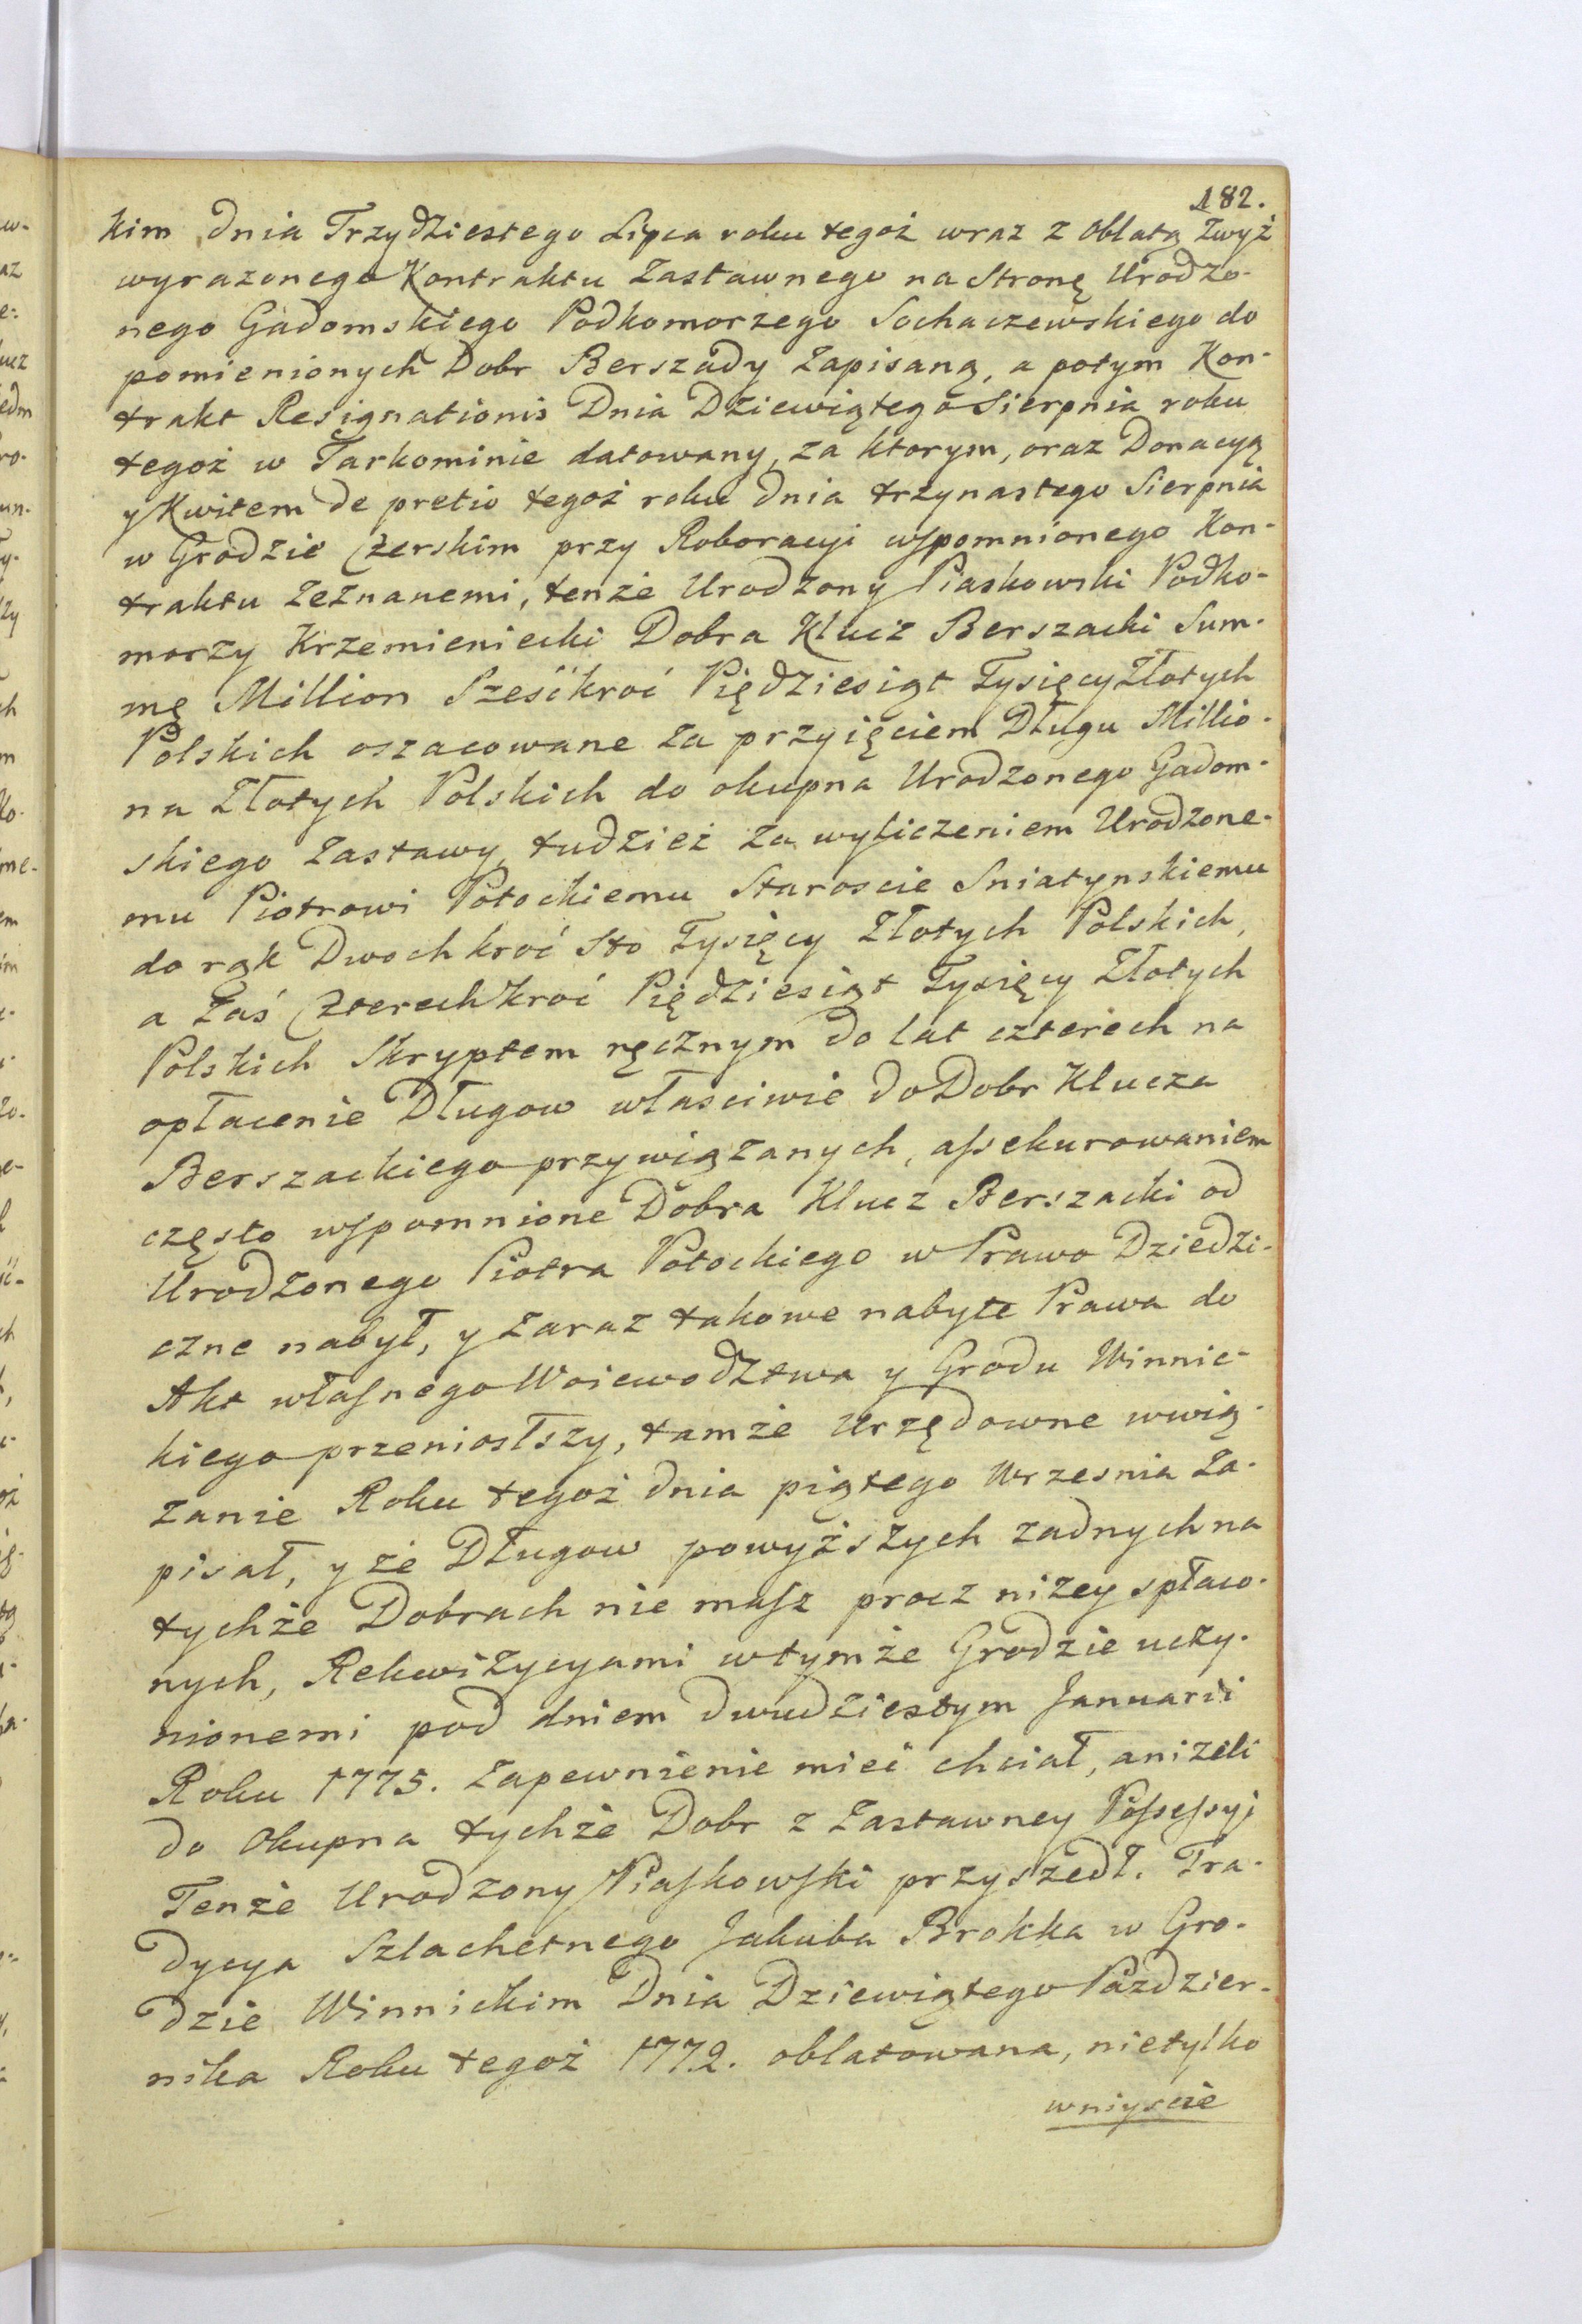 182.
kim dnia Trzydziestego Lipca roku tegoż wraz z Oblatą zwyż
wyrazonego Kontraktu Zastawnego na Stronę Urodzo-
nego Gadomskiego Podkomorzego Sochaczewskiego do
pomienionych Dobr Berszady Zapisaną, a potym Kon-
trakt Resignationis Dnia Dziewiątego Sierpnia roku
tegoż w Tarkominie datowany, za ktorym, oraz Donacyą
y Kwitem de pretio tegoż roku dnia trzynastego Sierpnia
w Grodzie Czerskim przy Roboracyi wspomnionego Kon-
traktu Zeznanemi, tenże Urodzony Piaskowski Podko-
morzy Krzemieniecki Dobra Klucz Berszacki Sum-
mę Million Sześćkroć Piędziesiąt Tysięcy Złotych
Polskich oszacowane za przyięciem Długu Millio-
na Złotych Polskich do okupna Urodzonego Gadom-
skiego Zastawy, tudzież za wyliczeniem Urodzone-
mu Piotrowi Potockiemu Staroscie Sniatynskiemu
do rąk Dwochkroć Sto Tysięcy Złotych Polskich,
a Zaś Czterechkroć Piędziesiąt Tysięcy Złotych
Polskich Skryptem ręcznym do lat czterech na
opłacenie Długow własciwie do Dobr Klucza
Berszackiego przywiązanych, assekurowaniem
często wspomnione Dobra Klucz Berszacki od
Urodzonego Piotra Potockiego w Prawo Dziedzi-
czne nabył, y zaraz takowe nabyte Prawa do
Akt własnego Woiewodztwa y Grodu Winnic-
kiego przeniosłszy, tamże Urzędowne wwią-
zanie Roku tegoż dnia piątego Wrzesnia Za-
pisał, y że Długow powyższych zadnych na
tychże Dobrach nie masz procz niżey spłaco-
nych, Rekwizycyami w tymże Grodzie uczy-
nionemi pod dniem dwudziestym Januarii
Roku 1775. Zapewnienie mieć chciał, aniżeli
do Okupna tychże Dobr z Zastawney Possessyi
Tenże Urodzony Piaskowski przyszedł. Tra-
dycya Szlachetnego Jakuba Brokka w Gro-
dzie Winnickim Dnia Dziewiątego Pazdzier-
nika Roku tegoż 1772. oblatowana, nietylko
wniyscie